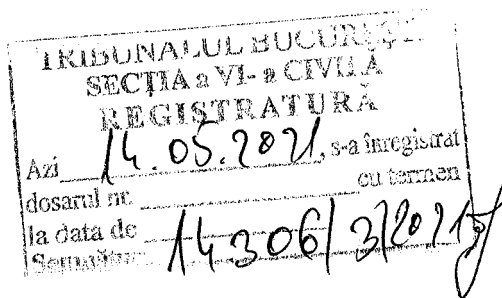 TRIBUNALUL BUCUREȘTI
SECȚIA a VI-a CIVILĂ
REGISTRATURĂ
Azi 14.05.2021, s-a înregistrat
dosarul nr. cu termen
la data de
Semnătura 14306/3/2021